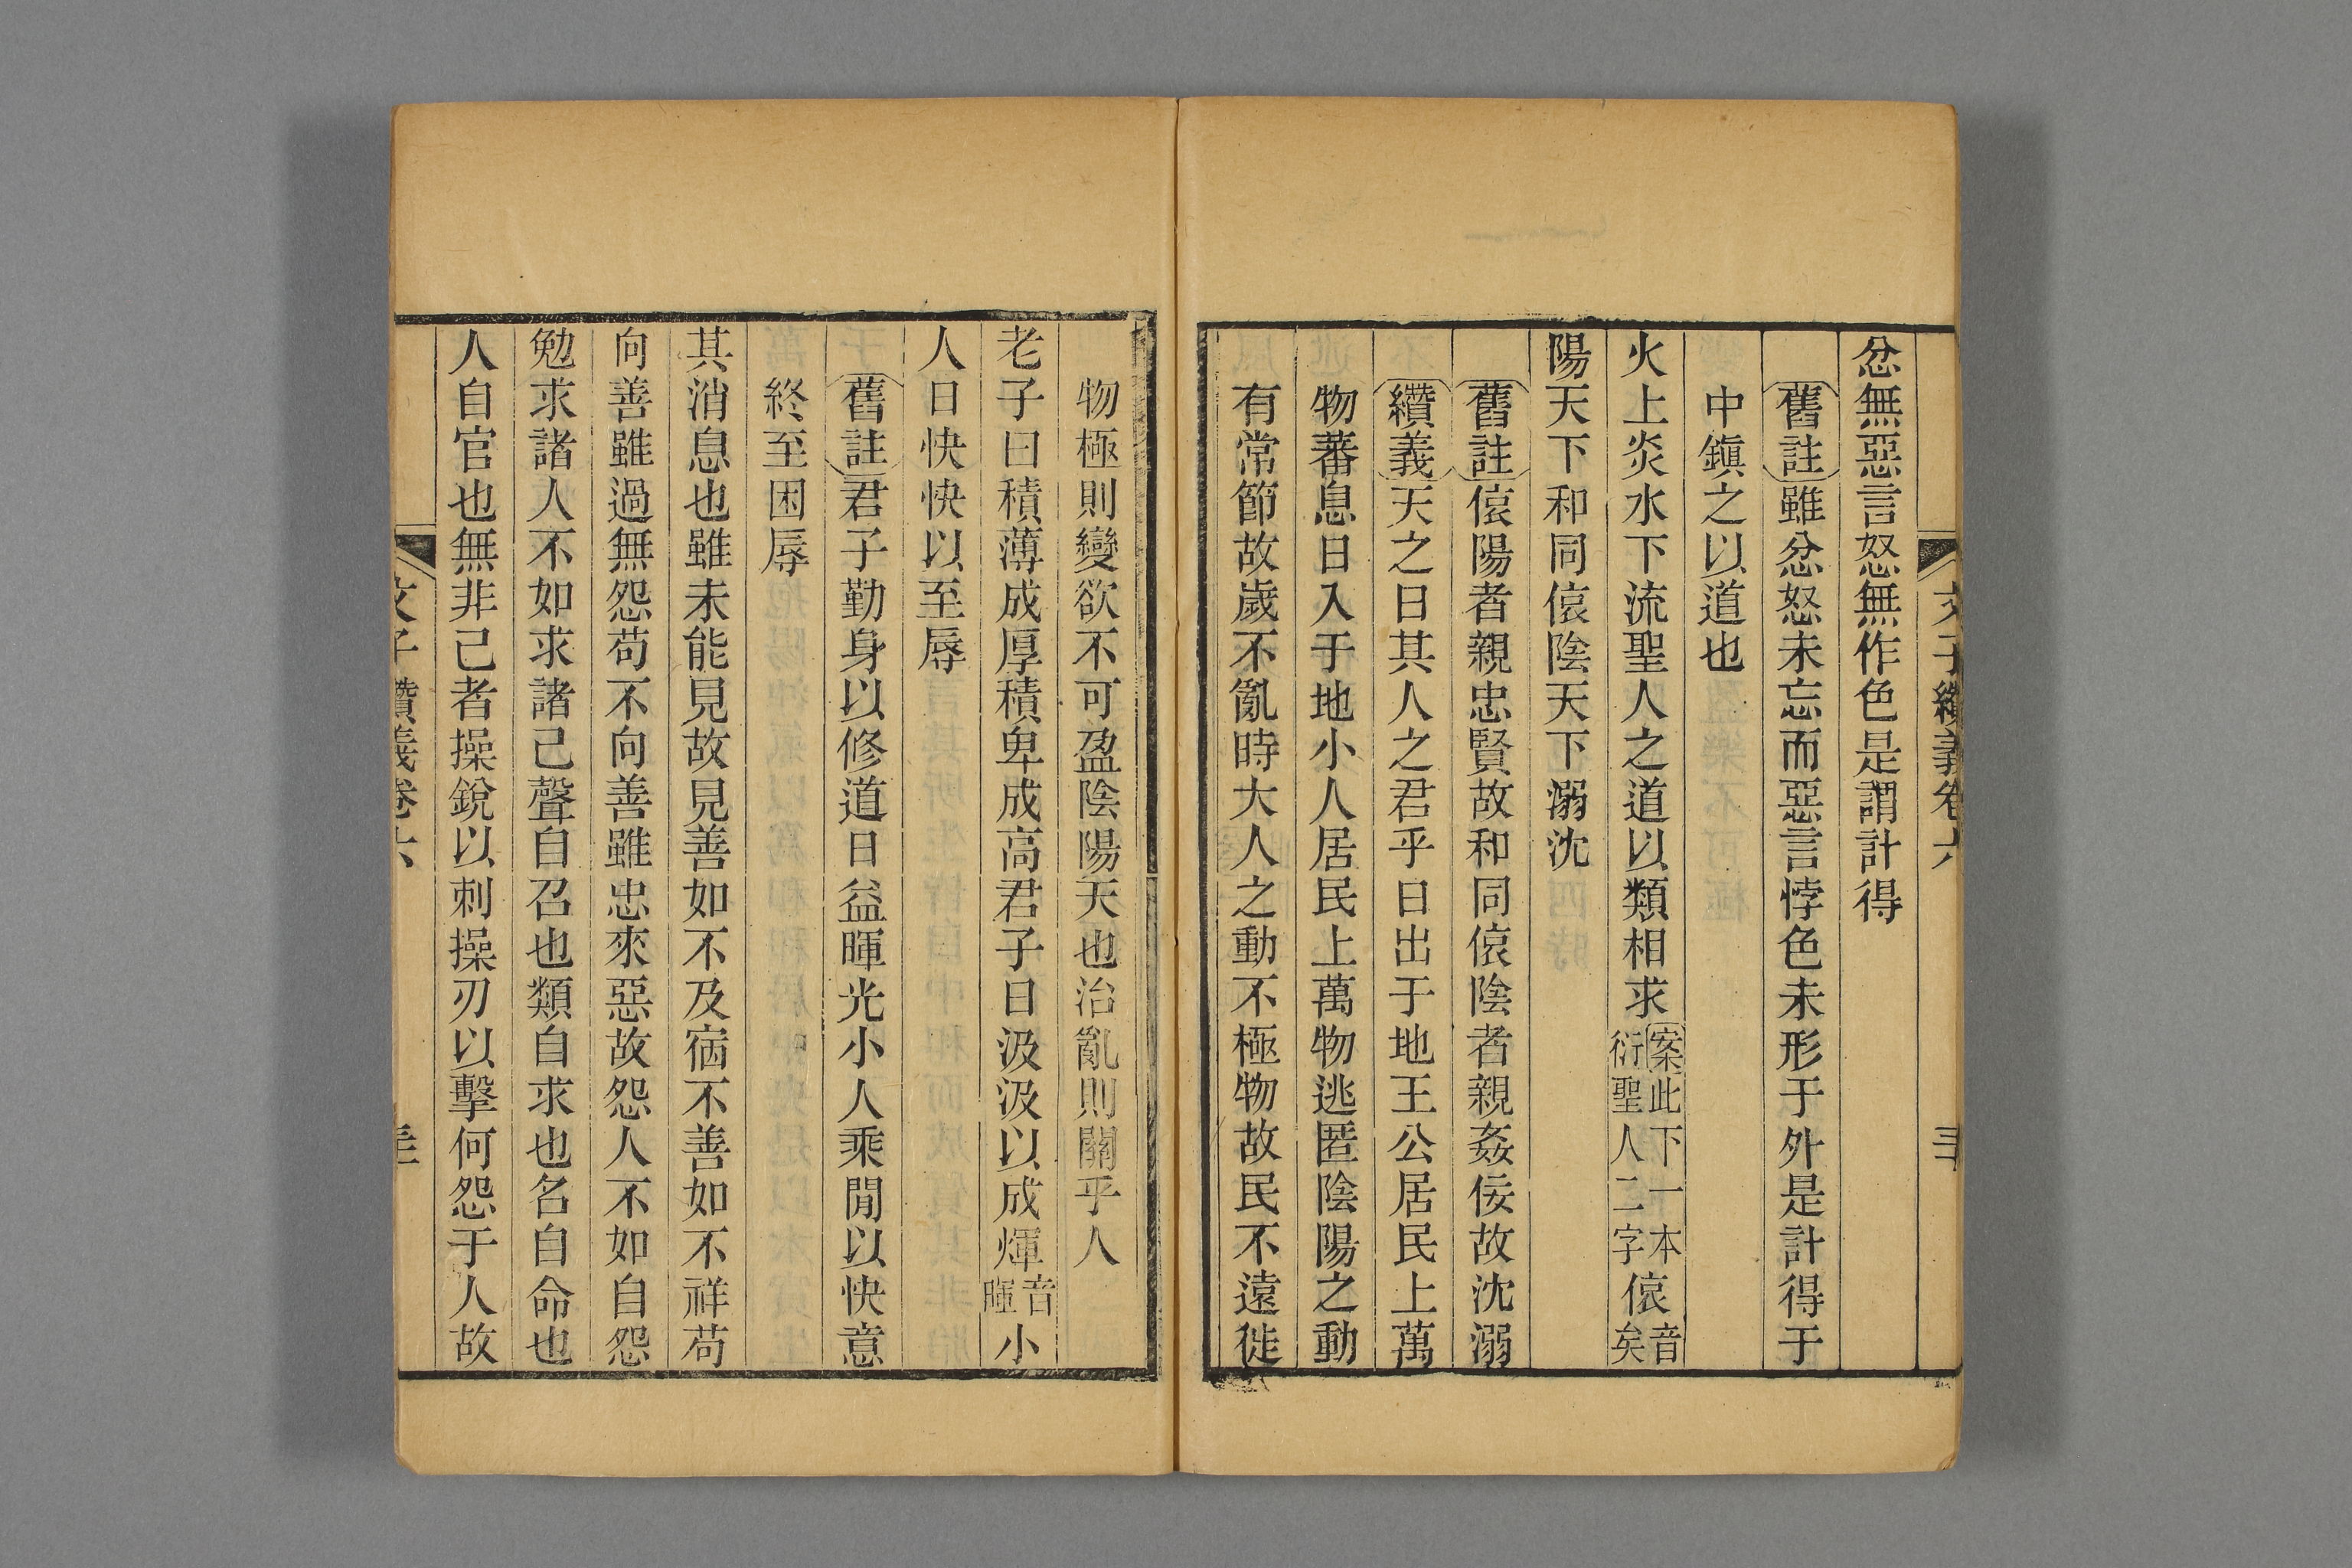 文子纘義卷六
忿無惡言怒無作色是謂計得
舊註雖忿怒未忘而惡言悖色未形于外是計得于
中鎭之以道也
火上炎水下流聖人之道以類相求案此下一本衍聖人二字偯音矣
陽天下和同偯陰天下溺沈
舊註偯陽者親忠賢故和同偯陰者親姦佞故沈溺
纘義天之日其人之君乎日出于地王公居民上萬
物蕃息日入于地小人居民上萬物逃匿陰陽之動
有常節故歲不亂時大人之動不極物故民不遠徙
物極則變欲不可盈陰陽天也治亂則關乎人
老子曰積薄成厚積卑成高君子日汲汲以成煇音暉小
人日快快以至辱
舊註君子勤身以修道日益暉光小人乘閒以快意
終至困辱
其消息也雖未能見故見善如不及宿不善如不祥苟
向善雖過無怨苟不向善雖忠來惡故怨人不如自怨
勉求諸人不如求諸己聲自召也類自求也名自命也
人自官也無非己者操銳以刺操刃以擊何怨于人故
文子纘義卷六